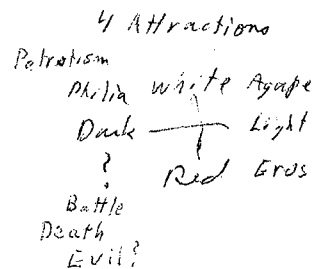 4 Attractions
Patriotism
Philia White Agape
Dark Light
?
Red Eros
Battle
Death
Evil?